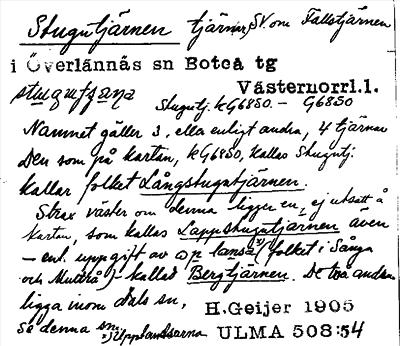 Stugutjärnen tjärnar, SV om Fallstjärnen
i Överlännäs sn Boteå tg
Västernorrl.l.
Stugutj. kG6850.- G6850
Namnet gäller 3, eller enligt andra, 4 tjärnar
Den som på kartan, kG6850, kallas Stugutj.
kallar folket Långstugutjärnen.
Strax väster om denna ligger en, ej utsatt å
kartan, som kallas Lappstugutjärnen även
- enl. uppgift av (folket i Sånga
och ) - kallad Bergtjärnen. De två andra
ligga inom Dals sn,
H.Geijer 1905
se denna sn.
Upplandsarna
ULMA 508:54